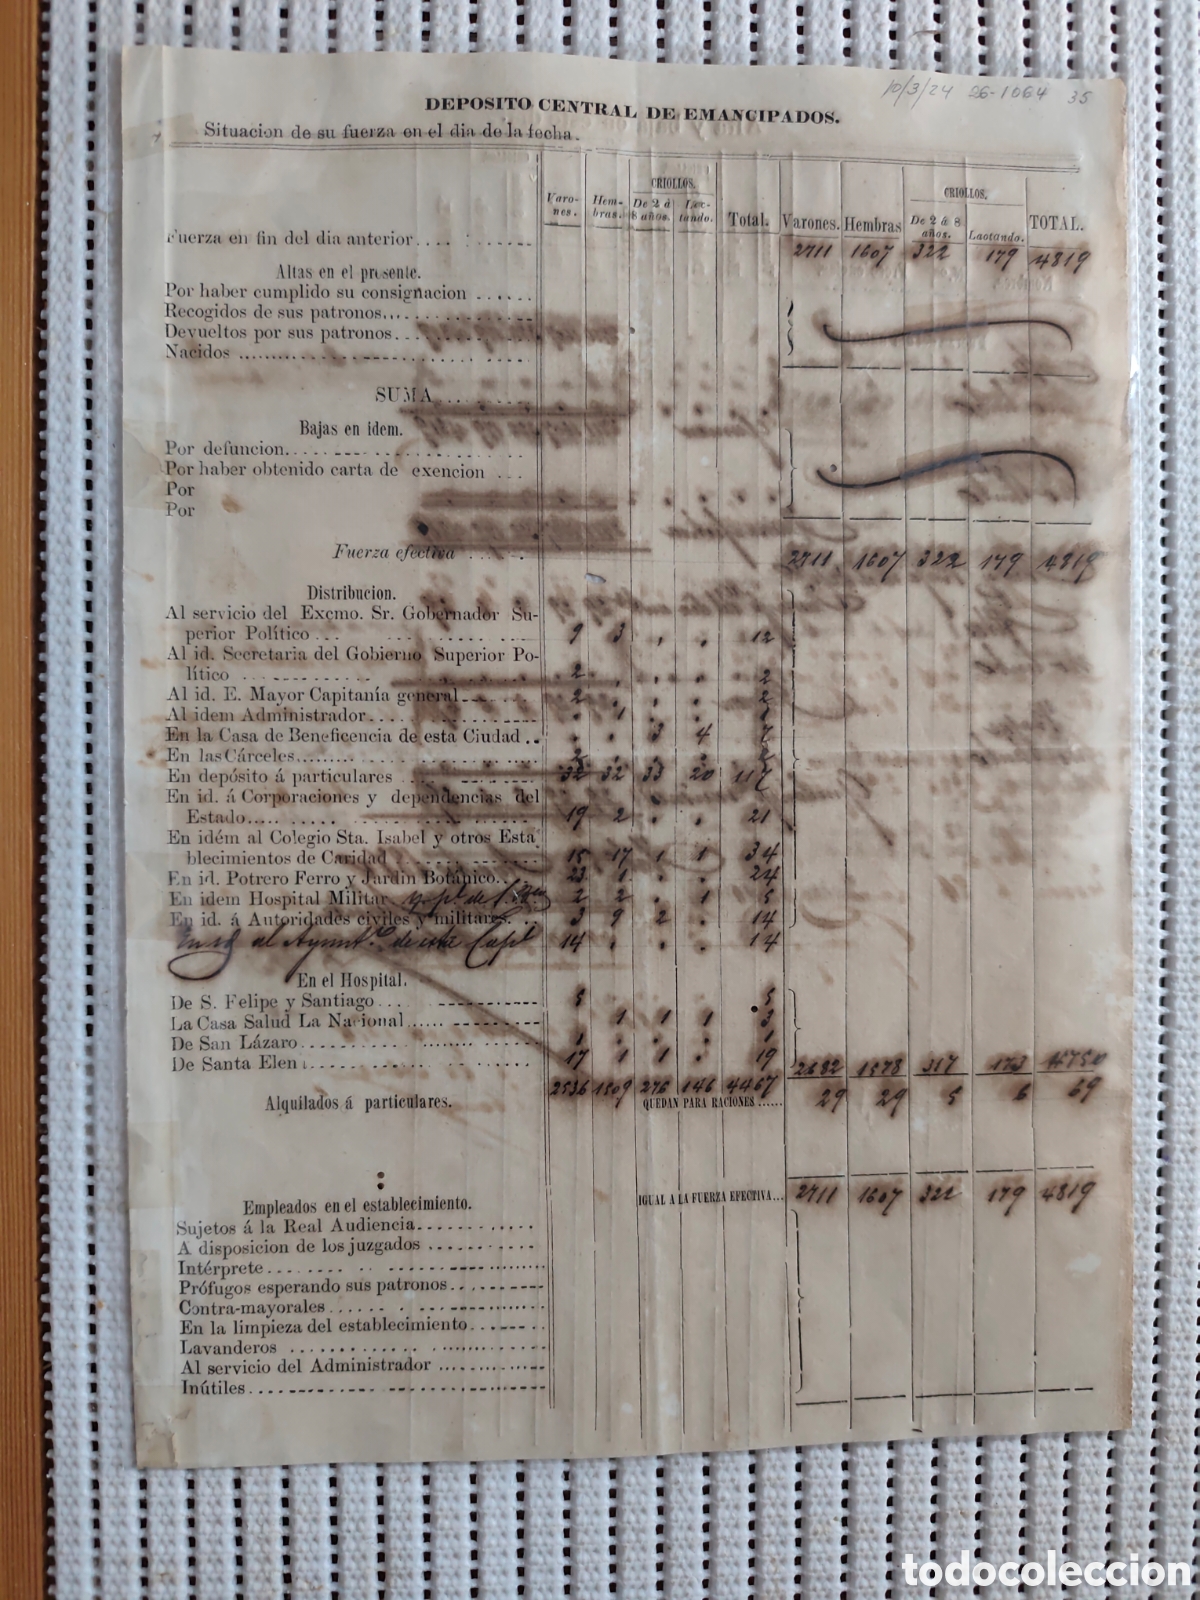 10/3/24 26-1064 35
DEPOSITO CENTRAL DE EMANCIPADOS.
Situacion de su fuerza en el dia de la fecha.
CRIOLLOS. CRIOLLOS.
Varones. Hembras. De 2 á 8 años. Lactando. Total. Varones. Hembras De 2 á 8 años. Lactando. TOTAL.
Fuerza en fin del dia anterior.... 2711 1607 322 179 4819
Altas en el presente.
Por haber cumplido su consignacion ......
Recogidos de sus patronos...
Devueltos por sus patronos...
Nacidos ..........
SUMA.........
Bajas en idem.
Por defuncion.
Por haber obtenido carta de exencion ...
Por
Por
Fuerza efectiva ...... 2711 1607 322 179 4819
Distribucion.
Al servicio del Excmo. Sr. Gobernador Su-
perior Político ... 9 3 , . 12
Al id. Secretaria del Gobierno Superior Po-
lítico ............. 2 . . . 2
Al id. E. Mayor Capitanía general 2 . . . 2
Al idem Administrador . 1 . . 1
En la Casa de Beneficencia de esta Ciudad .. . . 3 4 7
En las Cárceles 2 . . . 2
En depósito á particulares 32 32 33 20 117
En id. á Corporaciones y dependencias del
Estado..... 19 2 . . 21
En idém al Colegio Sta. Isabel y otros Esta
blecimientos de Caridad 15 17 1 1 34
En id. Potrero Ferro y Jardin Botánico. 23 1 . . 24
En idem Hospital Militar 2 2 . 1 5
En id. á Autoridades civiles y militares. 3 9 2 . 14
En id al Ayunt.o de esta Capl 14 . . . 14
En el Hospital.
De S. Felipe y Santiago 5 5
La Casa Salud La Nacional 1 1 1 3
De San Lázaro 1 . . . 1
De Santa Elen 17 1 1 . 19
2682 1578 317 173 4750
2536 1509 276 146 4467
Alquilados á particulares. QUEDAN PARA RACIONES ...... 29 29 5 6 69
IGUAL A LA FUERZA EFECTIVA... 2711 1607 322 179 4819
Empleados en el establecimiento.
Sujetos á la Real Audiencia
A disposicion de los juzgados
Intérprete
Prófugos esperando sus patronos
Contra-mayorales
En la limpieza del establecimiento
Lavanderos
Al servicio del Administrador
Inútiles
todocoleccion